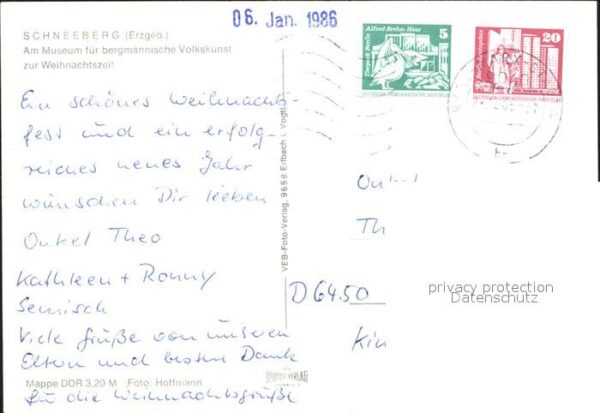 06. Jan. 1986
SCHNEEBERG (Erzgeb.)
Am Museum für bergmännische Volkskunst
zur Weihnachtszeit
Alfred Brehm Haus
5
Tierpark Berlin
20
DEUTSCHE DEMOKRATISCHE REPUBLIK
Ein schönes Weihnachts-
fest und ein erfolg-
reiches neues Jahr
wünschen Dir lieben
Onkel Theo
Kathleen + Ronny
Semisch
Viele Grüße von unseren
Eltern und besten Dank
für die Weihnachtsgrüße
Mappe DDR 3,20 M Foto: Hoffmann
VEB-Foto-Verlag, 9658 Erlbach i. Vogtl.
Onkel
Th
D 6450
Kin
privacy protection
Datenschutz